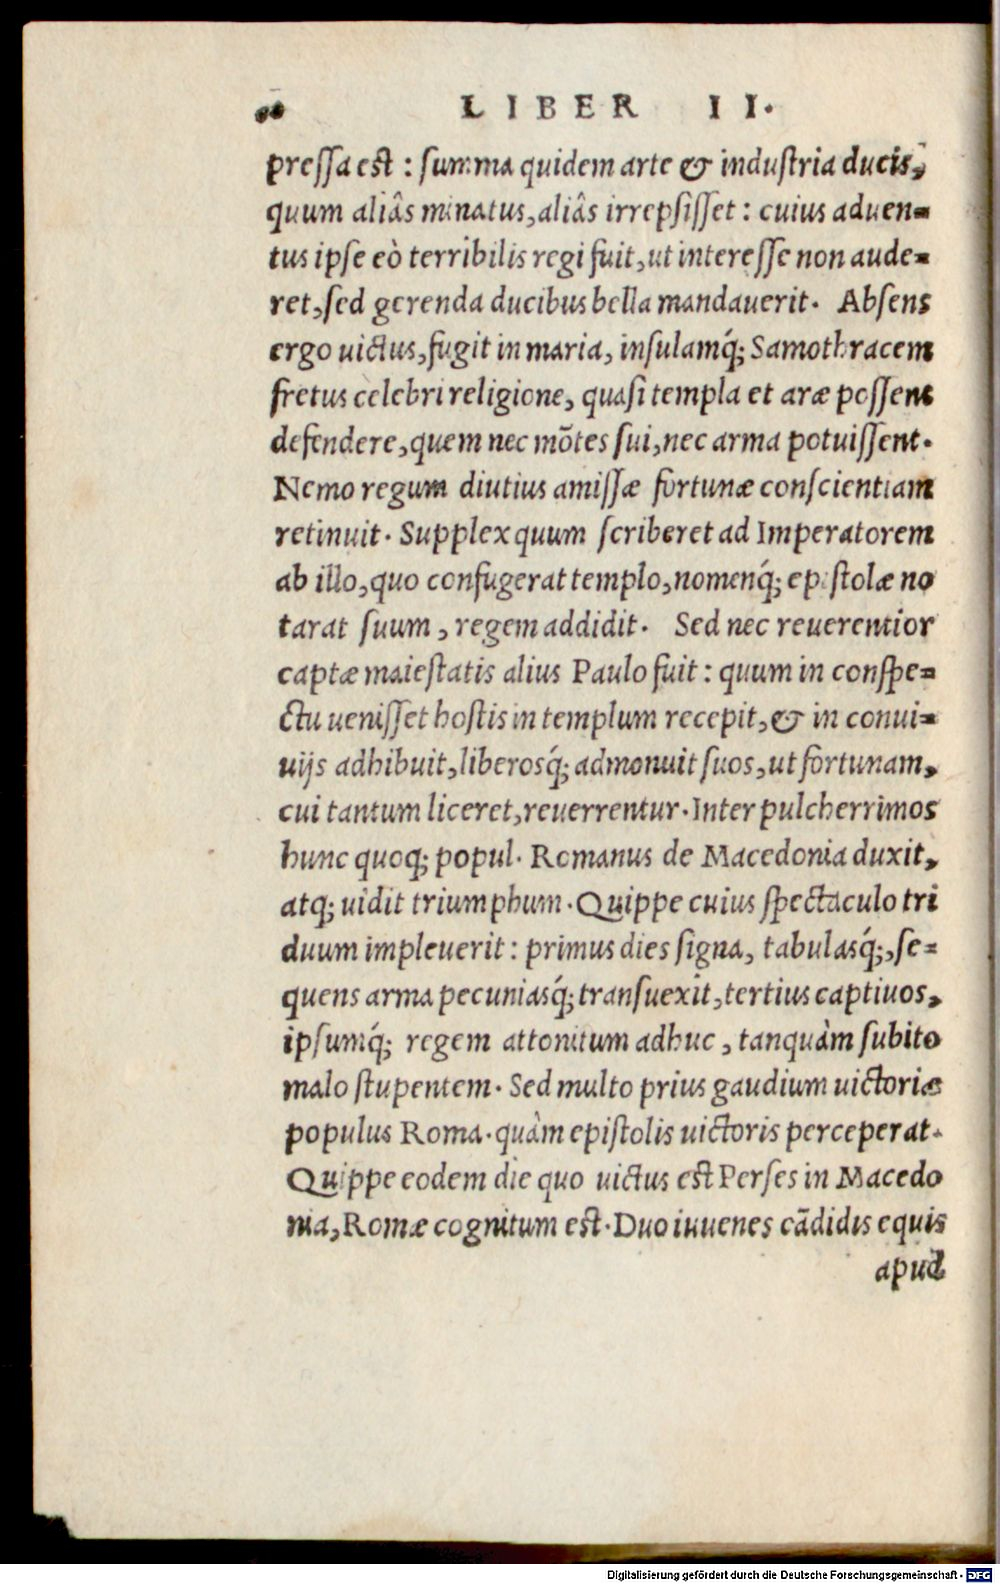 LIBER II.
pressa est : summa quidem arte & industria ducis,
quum aliâs minatus, aliâs irrepsisset : cuius aduen=
tus ipse eò terribilis regi fuit, ut interesse non aude=
ret, sed gerenda ducibus bella mandauerit. Absens
ergo uictus, fugit in maria, insulamq́; Samothracem
fretus celebri religione, quasi templa et aræ possent
defendere, quem nec mōtes sui, nec arma potuissent.
Nemo regum diutius amissæ fortunæ conscientiam
retinuit. Supplex quum scriberet ad Imperatorem
ab illo, quo confugerat templo, nomenq́; epistolæ no
tarat suum, regem addidit. Sed nec reuerentior
captæ maiestatis alius Paulo fuit : quum in conspe=
ctu uenisset hostis in templum recepit, & in conui=
uijs adhibuit, liberosq́; admonuit suos, ut fortunam,
cui tantum liceret, reuerrentur. Inter pulcherrimos
hunc quoq; popul. Romanus de Macedonia duxit,
atq; uidit triumphum. Quippe cuius spectaculo tri
duum impleuerit : primus dies signa, tabulasq́;, se=
quens arma pecuniasq́; transuexit, tertius captiuos,
ipsumq́; regem attonitum adhuc, tanquàm subito
malo stupentem. Sed multo prius gaudium uictoriæ
populus Roma. quàm epistolis uictoris perceperat.
Quippe eodem die quo uictus est Perses in Macedo
nia, Romæ cognitum est. Duo iuuenes cādidis equis
apud
Digitalisierung gefördert durch die Deutsche Forschungsgemeinschaft - DFG